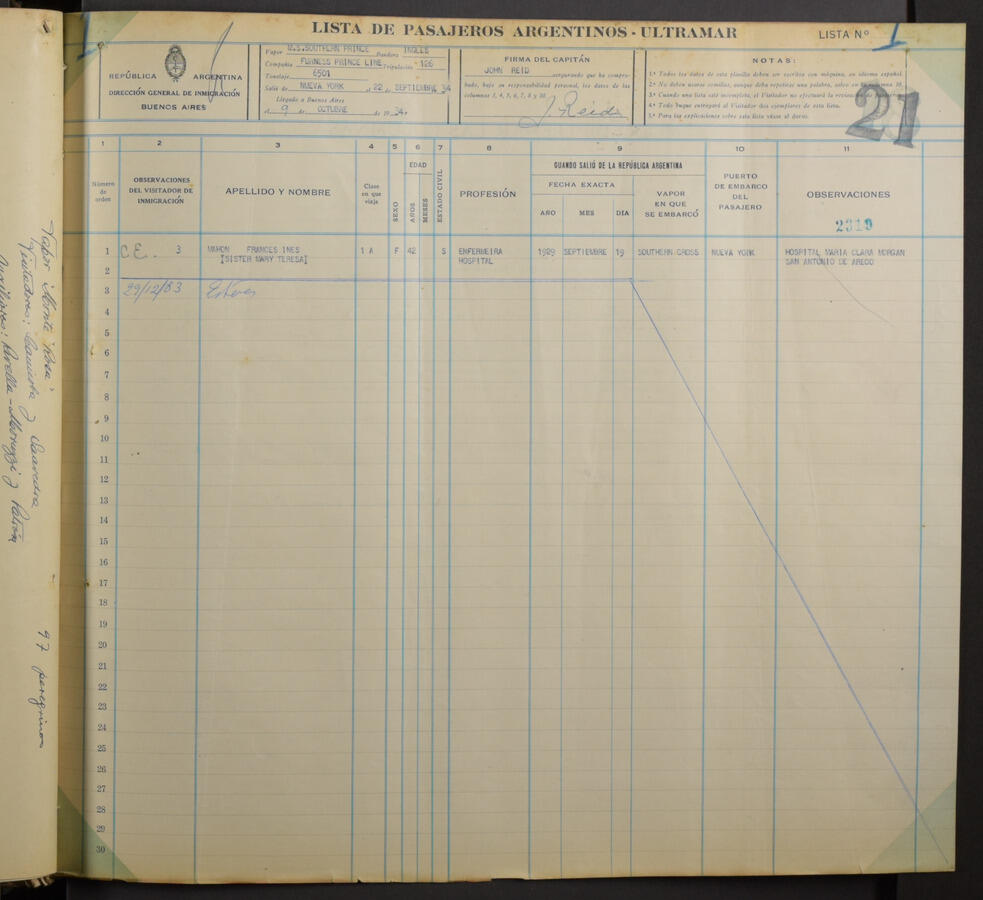 LISTA DE PASAJEROS ARGENTINOS - ULTRAMAR
LISTA N.º 1
REPÚBLICA ARGENTINA
DIRECCIÓN GENERAL DE INMIGRACIÓN
BUENOS AIRES
Vapor M.S.SOUTHERN PRINCE Bandera INGLES
Compañía FURNESS PRINCE LINE Tripulación 126
Tonelaje 6501
Salió de NUEVA YORK el 22 de SEPTIEMBRE 34
Llegado a Buenos Aires
el 9 de OCTUBRE de 1934.
FIRMA DEL CAPITÁN
JOHN REID asegurando que ha compro-
bado, bajo su responsabilidad personal, los datos de las
columnas 3, 4, 5, 6, 7, 8 y 10.
J. Reid
NOTAS:
1.ª Todos los datos de esta planilla deben ser escritos con máquina, en idioma español.
2.ª No deben usarse comillas, aunque deba repetirse una palabra, salvo en la columna 10.
3.ª Cuando una lista esté incompleta, el Visitador no efectuará la
4.ª Todo buque entregará al Visitador dos ejemplares de esta lista.
5.ª Para las explicaciones sobre esta lista véase al dorso.
21
1 2 3 4 5 6 7 8 9 10 11
Número de orden
OBSERVACIONES DEL VISITADOR DE INMIGRACIÓN
APELLIDO Y NOMBRE
Clase en que viaja
SEXO
EDAD
AÑOS
MESES
ESTADO CIVIL
PROFESIÓN
CUANDO SALIÓ DE LA REPÚBLICA ARGENTINA
FECHA EXACTA
AÑO MES DIA
VAPOR EN QUE SE EMBARCÓ
PUERTO DE EMBARCO DEL PASAJERO
OBSERVACIONES
2319
1 C.E. 3 MAHON FRANCES INES 1 A F 42 S ENFERMEIRA 1929 SEPTIEMBRE 19 SOUTHERN CROSS NUEVA YORK HOSPITAL MARIA CLARA MORGAN
[SISTER MARY TERESA] HOSPITAL SAN ANTONIO DE ARECO
2
3 29/12/83
4
5
6
7
8
9
10
11
12
13
14
15
16
17
18
19
20
21
22
23
24
25
26
27
28
29
30
Vapor Monte Rosa
Visitadores: y Saavedra
Auxiliares:
97 peregrinos